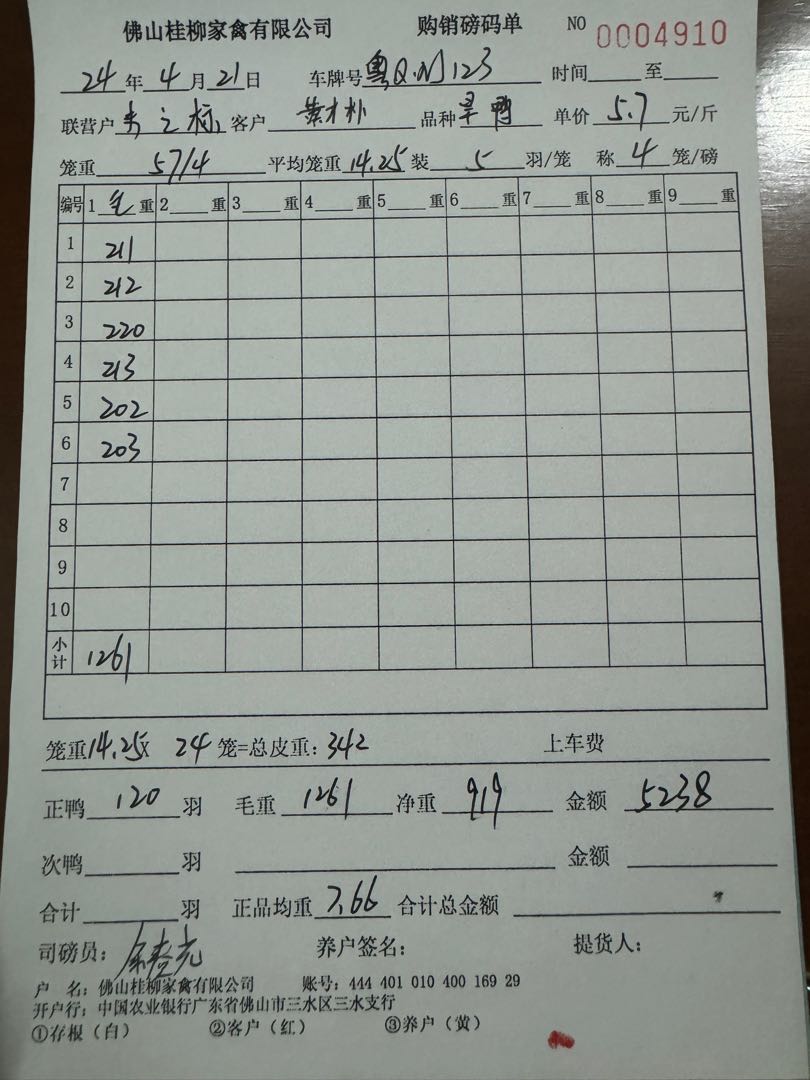 佛山桂柳家禽有限公司 购销磅码单 NO 0004910
24年4月21日 车牌号粤Q.N123 时间 至
联营户 之标 客户 品种 旱鸭 单价 5.7 元/斤
笼重 57/4 平均笼重 14.25 装 5 羽/笼 称 4 笼/磅
编号 1 毛 重 2 重 3 重 4 重 5 重 6 重 7 重 8 重 9 重
1 211
2 212
3 220
4 213
5 202
6 203
7
8
9
10
小计 1261
笼重14.25X 24 笼=总皮重：342 上车费
正鸭 120 羽 毛重 1261 净重 919 金额 5238
次鸭 羽 金额
合计 羽 正品均重 7.66 合计总金额
司磅员： 养户签名： 提货人：
户 名：佛山桂柳家禽有限公司 账号：444 401 010 400 169 29
开户行：中国农业银行广东省佛山市三水区三水支行
①存根（白） ②客户（红） ③养户（黄）